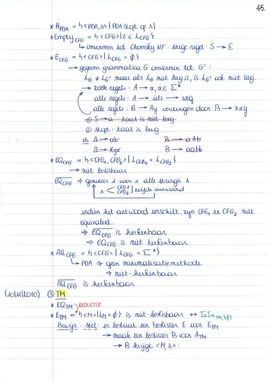 45.
* H_PDA = { <PDA, s> | PDA stopt op s }
* Empty_CFG = { <CFG> | ε ∈ L_CFG }
↳ omvormen tot Chomsky NF : enige regel : S → ε
* E_CFG = { <CFG> | L_CFG = ∅ }
→ gegeven grammatica G omvormen tot G' :
L_G ≠ L_G' maar als L_G leeg is, is L_G' ook niet leeg.
→ zoek regels : A → α, α ∈ Σ*
alle regels : A → iets → weg
alle regels : B → Ay vervangen door B → αxy
① S → α : taal is niet leeg
② stopt : taal is leeg
A → ab
B → aAb
A → xyz
B → aabb
* EQ_CFG = { <CFG1, CFG2> | L_CFG1 = L_CFG2 }
→ niet beslisbaar
EQ_CFG → genereer 1 voor 1 alle strings s
s < CFG1 CFG2 } zelfde antwoord
indien het antwoord verschilt zijn CFG1 en CFG2 niet
equivalent.
⇒ EQ_CFG is herkenbaar
⇒ EQ_CFG is niet herkenbaar
* ALL_CFG = { <CFG> | L_CFG = Σ* }
↳ PDA ⇒ geen minimalisatiemethode
⇒ niet-herkenbaar
ALL_CFG is herkenbaar
③ TM
* EQ_TM
* E_TM = { <M> | L_M = ∅ } is niet-beslisbaar
Bewijs : stel : er bestaat een beslisser E voor E_TM
→ maak een beslisser B voor A_TM
→ B krijgt <M, s> :